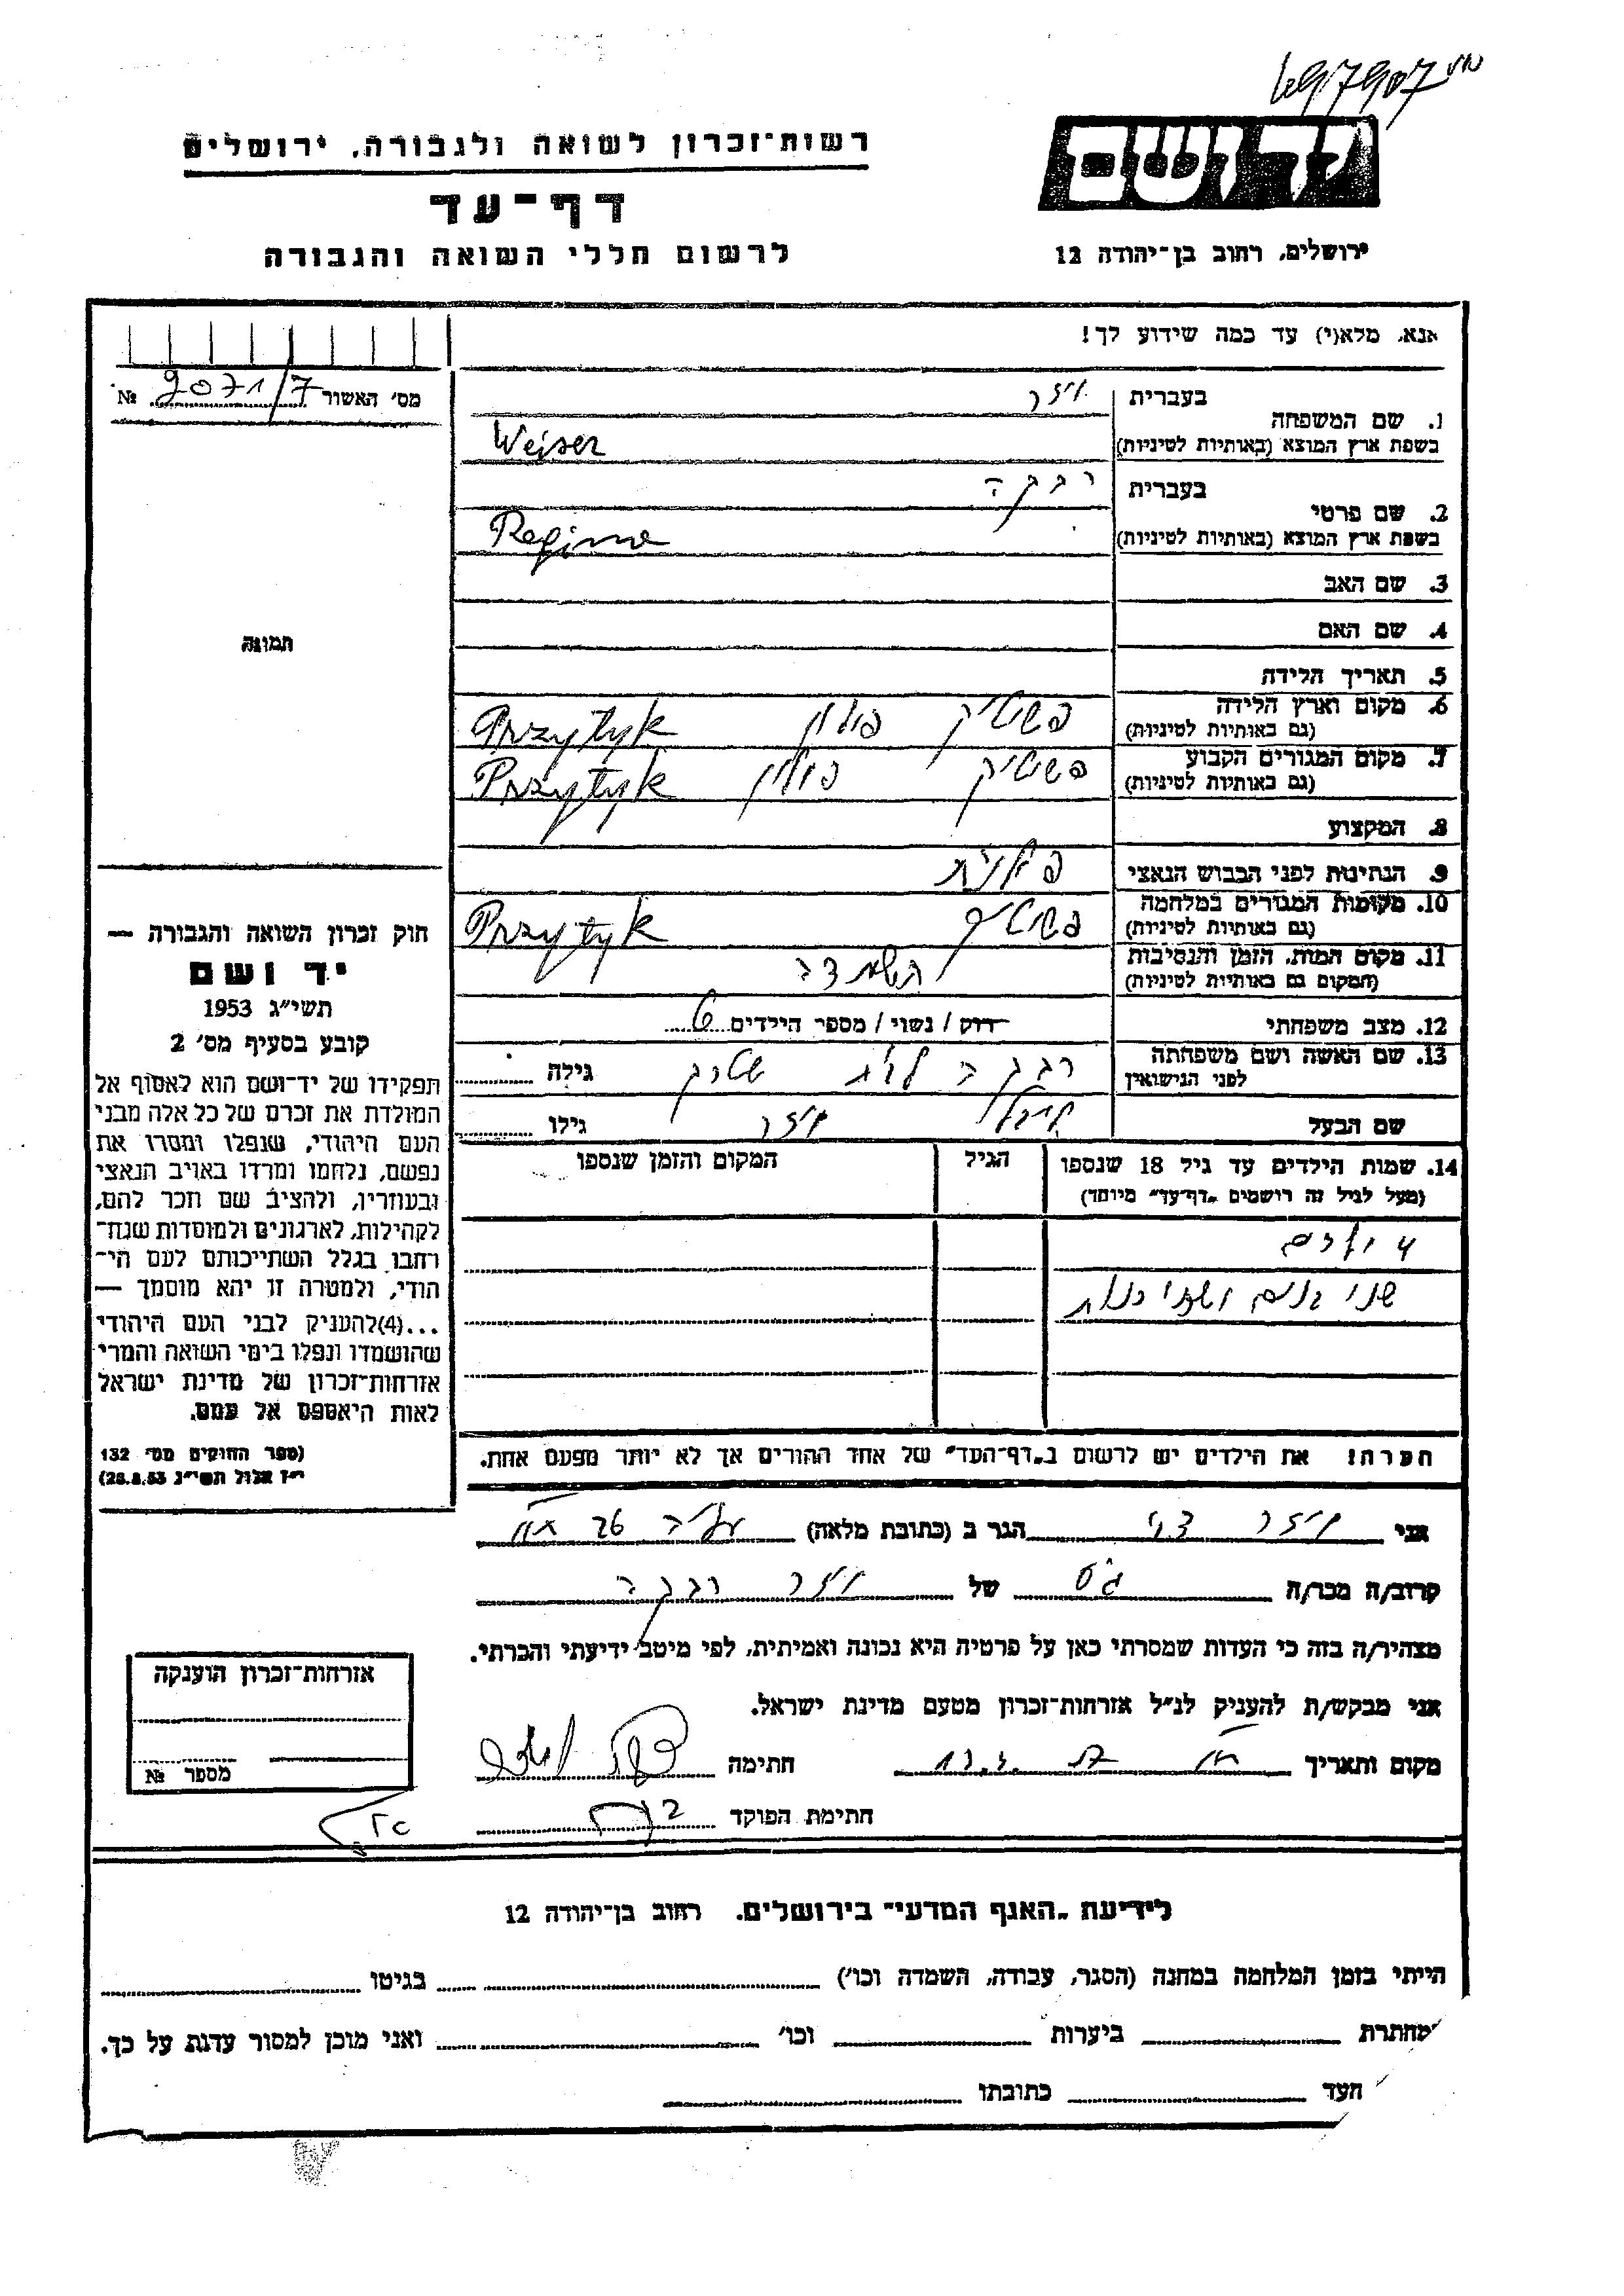 697907
רשות־זכרון לשואה ולגבורה, ירושלים
יד ושם
דף־עד
לרשום חללי השואה והגבורה
ירושלים, רחוב בן־יהודה 12
אנא, מלא(י) עד כמה שידוע לך!
מס' האשור 2071/7 №
1. שם המשפחה
בעברית ויזר
בשפת ארץ המוצא (באותיות לטיניות) Weiser
2. שם פרטי
בעברית רבקה
בשפת ארץ המוצא (באותיות לטיניות) Regina
3. שם האב
4. שם האם
תמונה
5. תאריך הלידה
6. מקום וארץ הלידה
(גם באותיות לטיניות) פשיטיק פולין Przytyk
7. מקום המגורים הקבוע
(גם באותיות לטיניות) פשיטיק פולין Przytyk
8. המקצוע
9. הנתינות לפני הכבוש הנאצי פולנית
10. מקומות המגורים במלחמה
(גם באותיות לטיניות) פשיטיק Przytyk
11. מקום המות, הזמן והנסיבות
(המקום גם באותיות לטיניות) השמדה
12. מצב משפחתי רוק/ נשוי/ מספר הילדים
13. שם האשה ושם משפחתה
לפני הנישואין רבקה לבית גילה
שם הבעל ויזר גילו
14. שמות הילדים עד גיל 18 שנספו
(מעל לגיל זה רושמים „דף־עד" מיוחד)
הגיל
המקום והזמן שנספו
4 ילדים
שני בנים ושתי בנות
הערה: את הילדים יש לרשום ב„דף־העד" של אחד ההורים אך לא יותר מפעם אחת.
חוק זכרון השואה והגבורה —
יד ושם
תשי"ג 1953
קובע בסעיף מס' 2
תפקידו של יד־ושם הוא לאסוף אל
המולדת את זכרם של כל אלה מבני
העם היהודי, שנפלו ומסרו את
נפשם, נלחמו ומרדו באויב הנאצי
ובעוזריו, ולהציב שם וזכר להם,
לקהילות, לארגונים ולמוסדות שנח־
רבו בגלל השתייכותם לעם הי־
הודי, ולמטרה זו יהא מוסמך —
...(4)להעניק לבני העם היהודי
שהושמדו ונפלו בימי השואה והמרי
אזרחות־זכרון של מדינת ישראל
לאות היאספם אל עמם.
(ספר החוקים מס' 132
י"ז אלול תשי"ג 28.8.53)
אני ויזר הגר ב (כתובת מלאה)
קרוב/ה מכר/ה גיס של ויזר רבקה
מצהיר/ה בזה כי העדות שמסרתי כאן על פרטיה היא נכונה ואמיתית, לפי מיטב ידיעתי והכרתי.
אני מבקש/ת להעניק לנ"ל אזרחות־זכרון מטעם מדינת ישראל.
מקום ותאריך חתימה
חתימת הפוקד
אזרחות־זכרון הוענקה
מספר №
לידיעת „האגף המדעי" בירושלים. רחוב בן־יהודה 12
הייתי בזמן המלחמה במחנה (הסגר, עבודה, השמדה וכו') בגיטו
מחתרת ביערות וכו' ואני מוכן למסור עדות על כך.
העד כתובתו